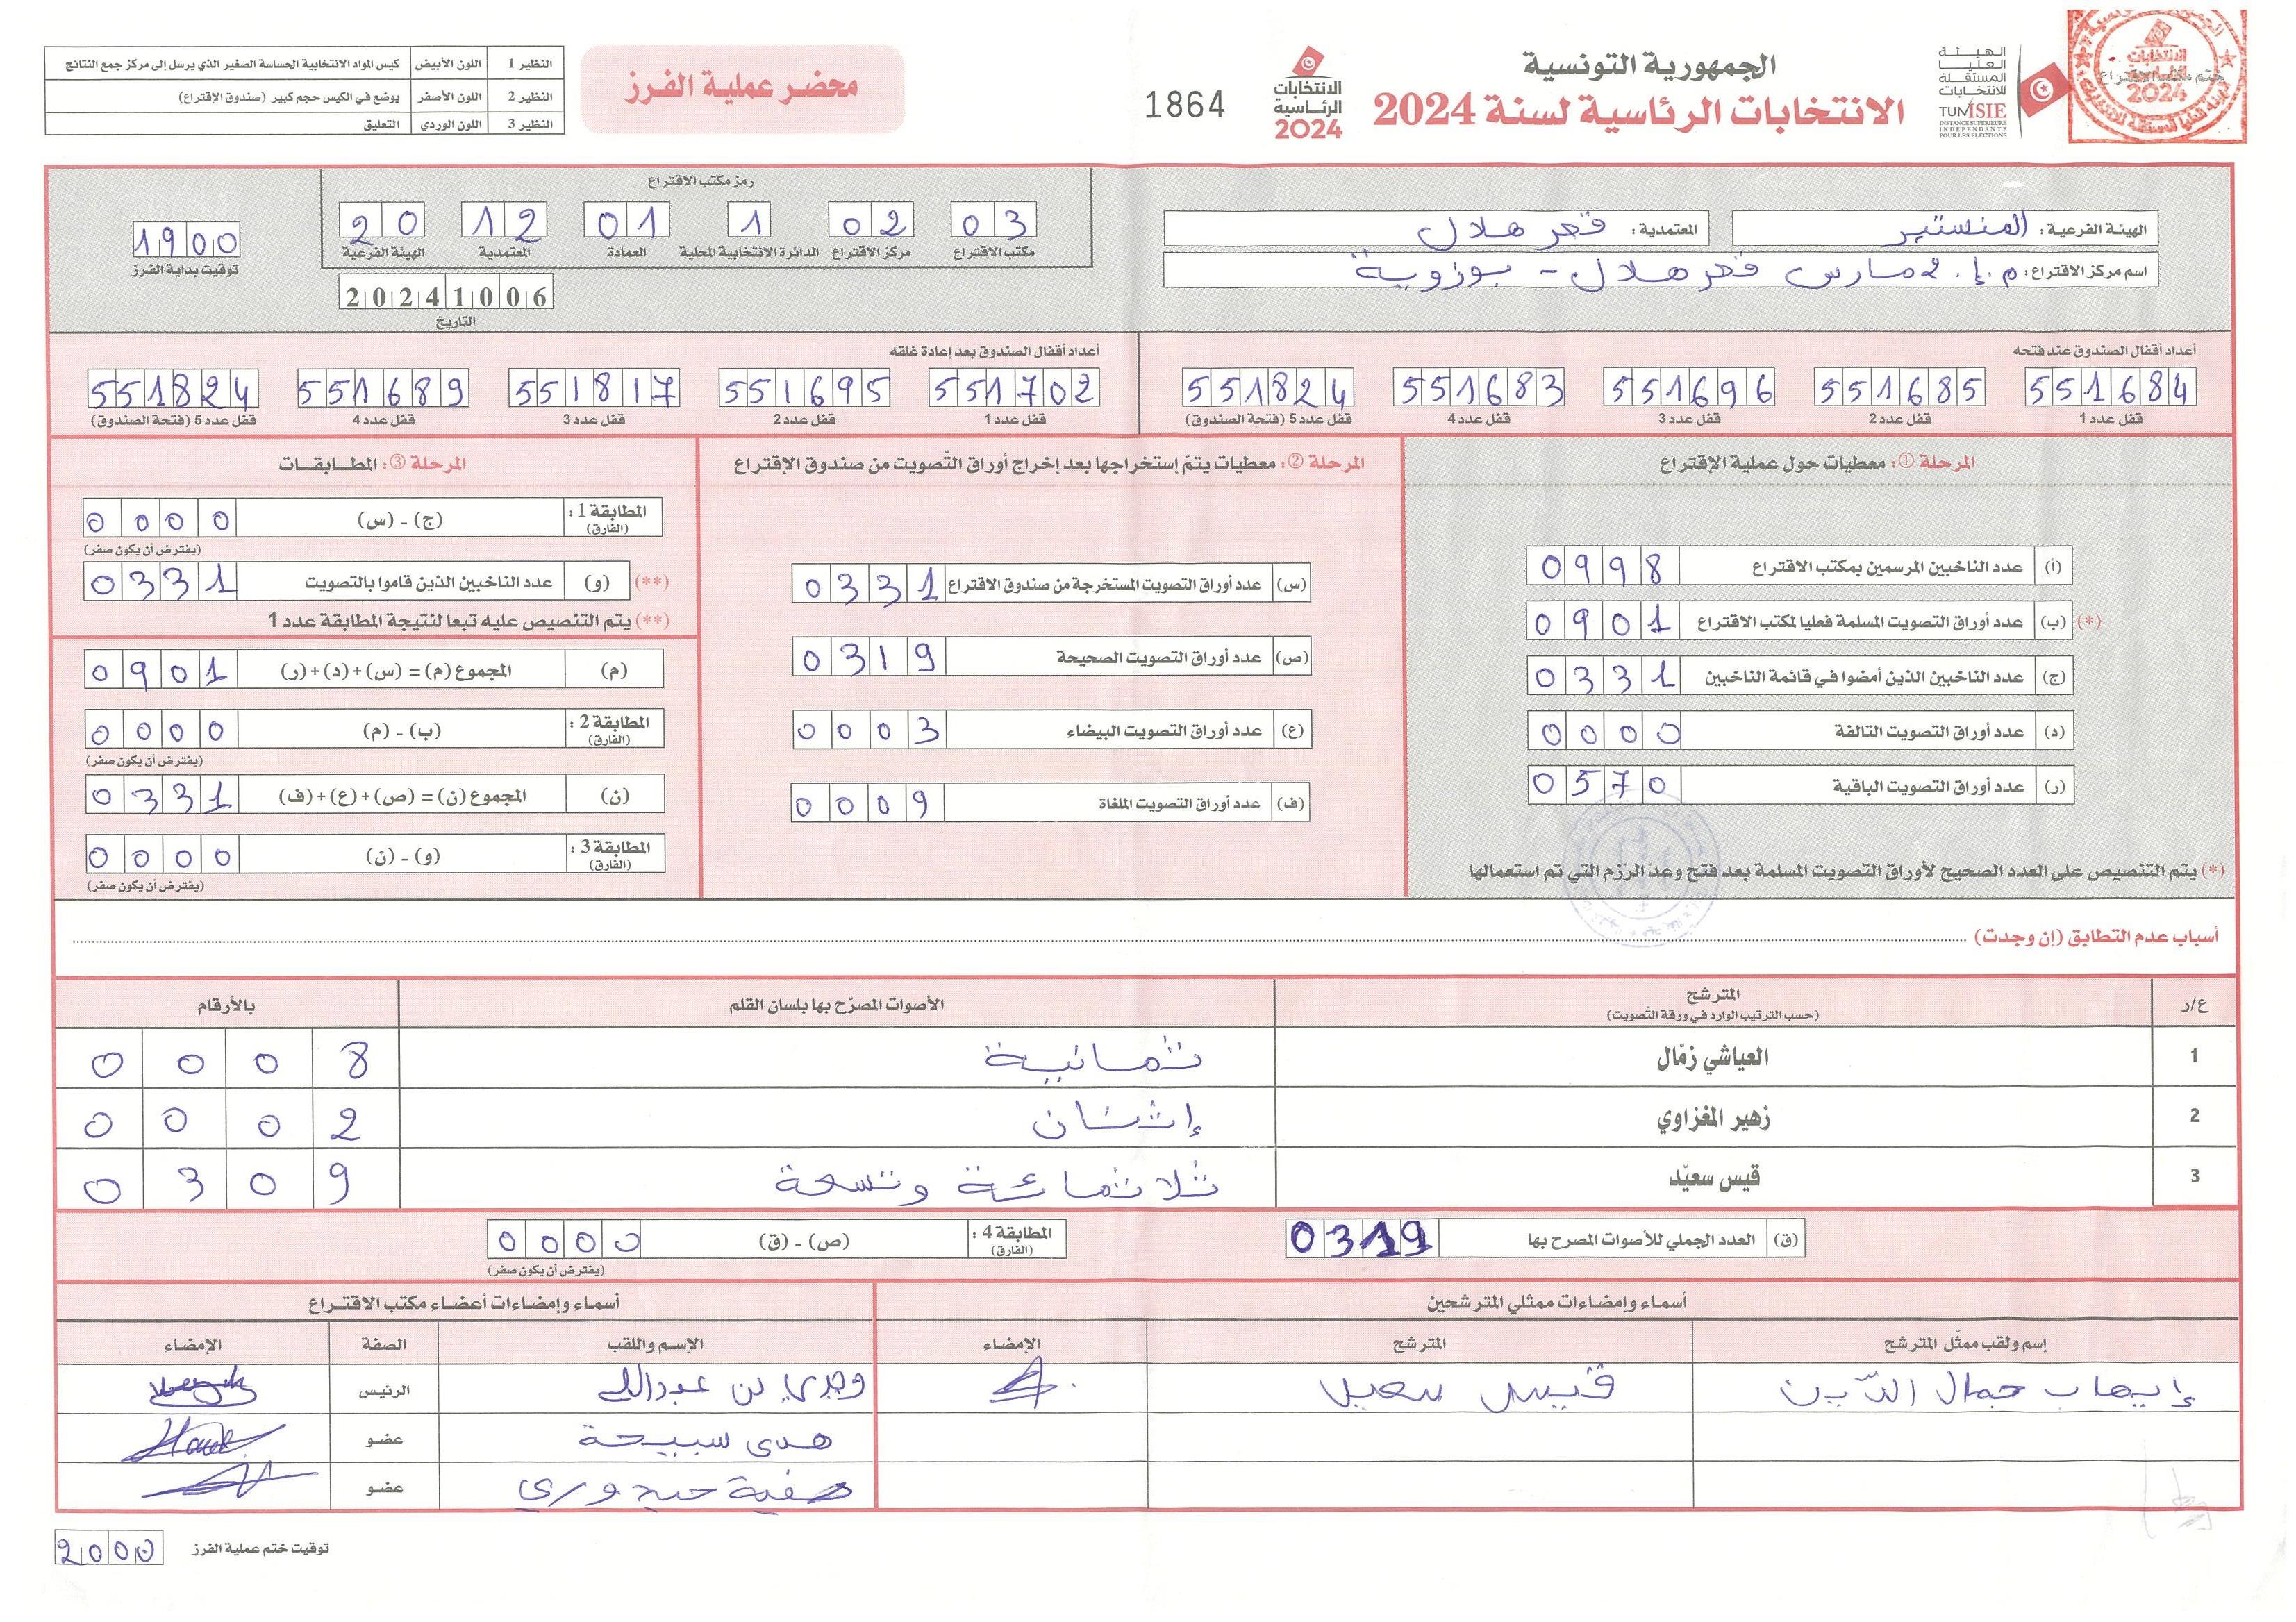 الجمهورية التونسية
الانتخابات الرئاسية لسنة 2024
الهيئة
العليا
المستقلة
للانتخابات
TUNISIE
INSTANCE SUPERIEURE
INDEPENDANTE
POUR LES ELECTIONS
ختم مكتب الاقتراع
الانتخابات
الرئاسية
2024
1864
محضر عملية الفرز
النظير 1 اللون الأبيض كيس المواد الانتخابية الحساسة الصغير الذي يرسل إلى مركز جمع النتائج
النظير 2 اللون الأصفر يوضع في الكيس حجم كبير (صندوق الإقتراع)
النظير 3 اللون الوردي التعليق
الهيئة الفرعية: المنستير المعتمدية: قصر هلال
اسم مركز الاقتراع: م.إ. 2 مارس قصر هلال - بوزوية
رمز مكتب الاقتراع
03 02 1 01 12 20
مكتب الاقتراع مركز الاقتراع الدائرة الانتخابية المحلية العمادة المعتمدية الهيئة الفرعية
20241006
التاريخ
1900
توقيت بداية الفرز
أعداد أقفال الصندوق عند فتحه
551684 551685 551696 551683 551824
قفل عدد 1 قفل عدد 2 قفل عدد 3 قفل عدد 4 قفل عدد 5 (فتحة الصندوق)
أعداد أقفال الصندوق بعد إعادة غلقه
551702 551695 551817 551689 551824
قفل عدد 1 قفل عدد 2 قفل عدد 3 قفل عدد 4 قفل عدد 5 (فتحة الصندوق)
المرحلة ①: معطيات حول عملية الإقتراع
(أ) عدد الناخبين المرسمين بمكتب الاقتراع 0998
(*) (ب) عدد أوراق التصويت المسلمة فعليا لمكتب الاقتراع 0901
(ج) عدد الناخبين الذين أمضوا في قائمة الناخبين 0331
(د) عدد أوراق التصويت التالفة 0000
(ر) عدد أوراق التصويت الباقية 0570
(*) يتم التنصيص على العدد الصحيح لأوراق التصويت المسلمة بعد فتح وعدّ الرّزم التي تم استعمالها
المرحلة ②: معطيات يتمّ إستخراجها بعد إخراج أوراق التّصويت من صندوق الإقتراع
(س) عدد أوراق التصويت المستخرجة من صندوق الاقتراع 0331
(ص) عدد أوراق التصويت الصحيحة 0319
(ع) عدد أوراق التصويت البيضاء 0003
(ف) عدد أوراق التصويت الملغاة 0009
المرحلة ③: المطابقات
المطابقة 1: (الفارق) (ج) - (س) 0000
(يفترض أن يكون صفر)
(**) (و) عدد الناخبين الذين قاموا بالتصويت 0331
(**) يتم التنصيص عليه تبعا لنتيجة المطابقة عدد 1
(م) المجموع (م) = (س) + (د) + (ر) 0901
المطابقة 2: (الفارق) (ب) - (م) 0000
(يفترض أن يكون صفر)
(ن) المجموع (ن) = (ص) + (ع) + (ف) 0331
المطابقة 3: (الفارق) (و) - (ن) 0000
(يفترض أن يكون صفر)
أسباب عدم التطابق (إن وجدت)
ع/ر المترشح الأصوات المصرّح بها بلسان القلم بالأرقام
(حسب الترتيب الوارد في ورقة التّصويت)
1 العياشي زمّال ثمانية 0008
2 زهير المغزاوي إثنان 0002
3 قيس سعيّد ثلاثمائة وتسعة 0309
(ق) العدد الجملي للأصوات المصرح بها 0319
المطابقة 4: (الفارق) (ص) - (ق) 0000
(يفترض أن يكون صفر)
أسماء وإمضاءات ممثلي المترشحين
إسم ولقب ممثّل المترشح المترشح الإمضاء
إيهاب جمال الدّين قيس سعيد
أسماء وإمضاءات أعضاء مكتب الاقتراع
الإسم واللقب الصفة الإمضاء
وجدي بن عبدالله الرئيس
هدى سبيحة عضو
صفية حيدوري عضو
توقيت ختم عملية الفرز 2000